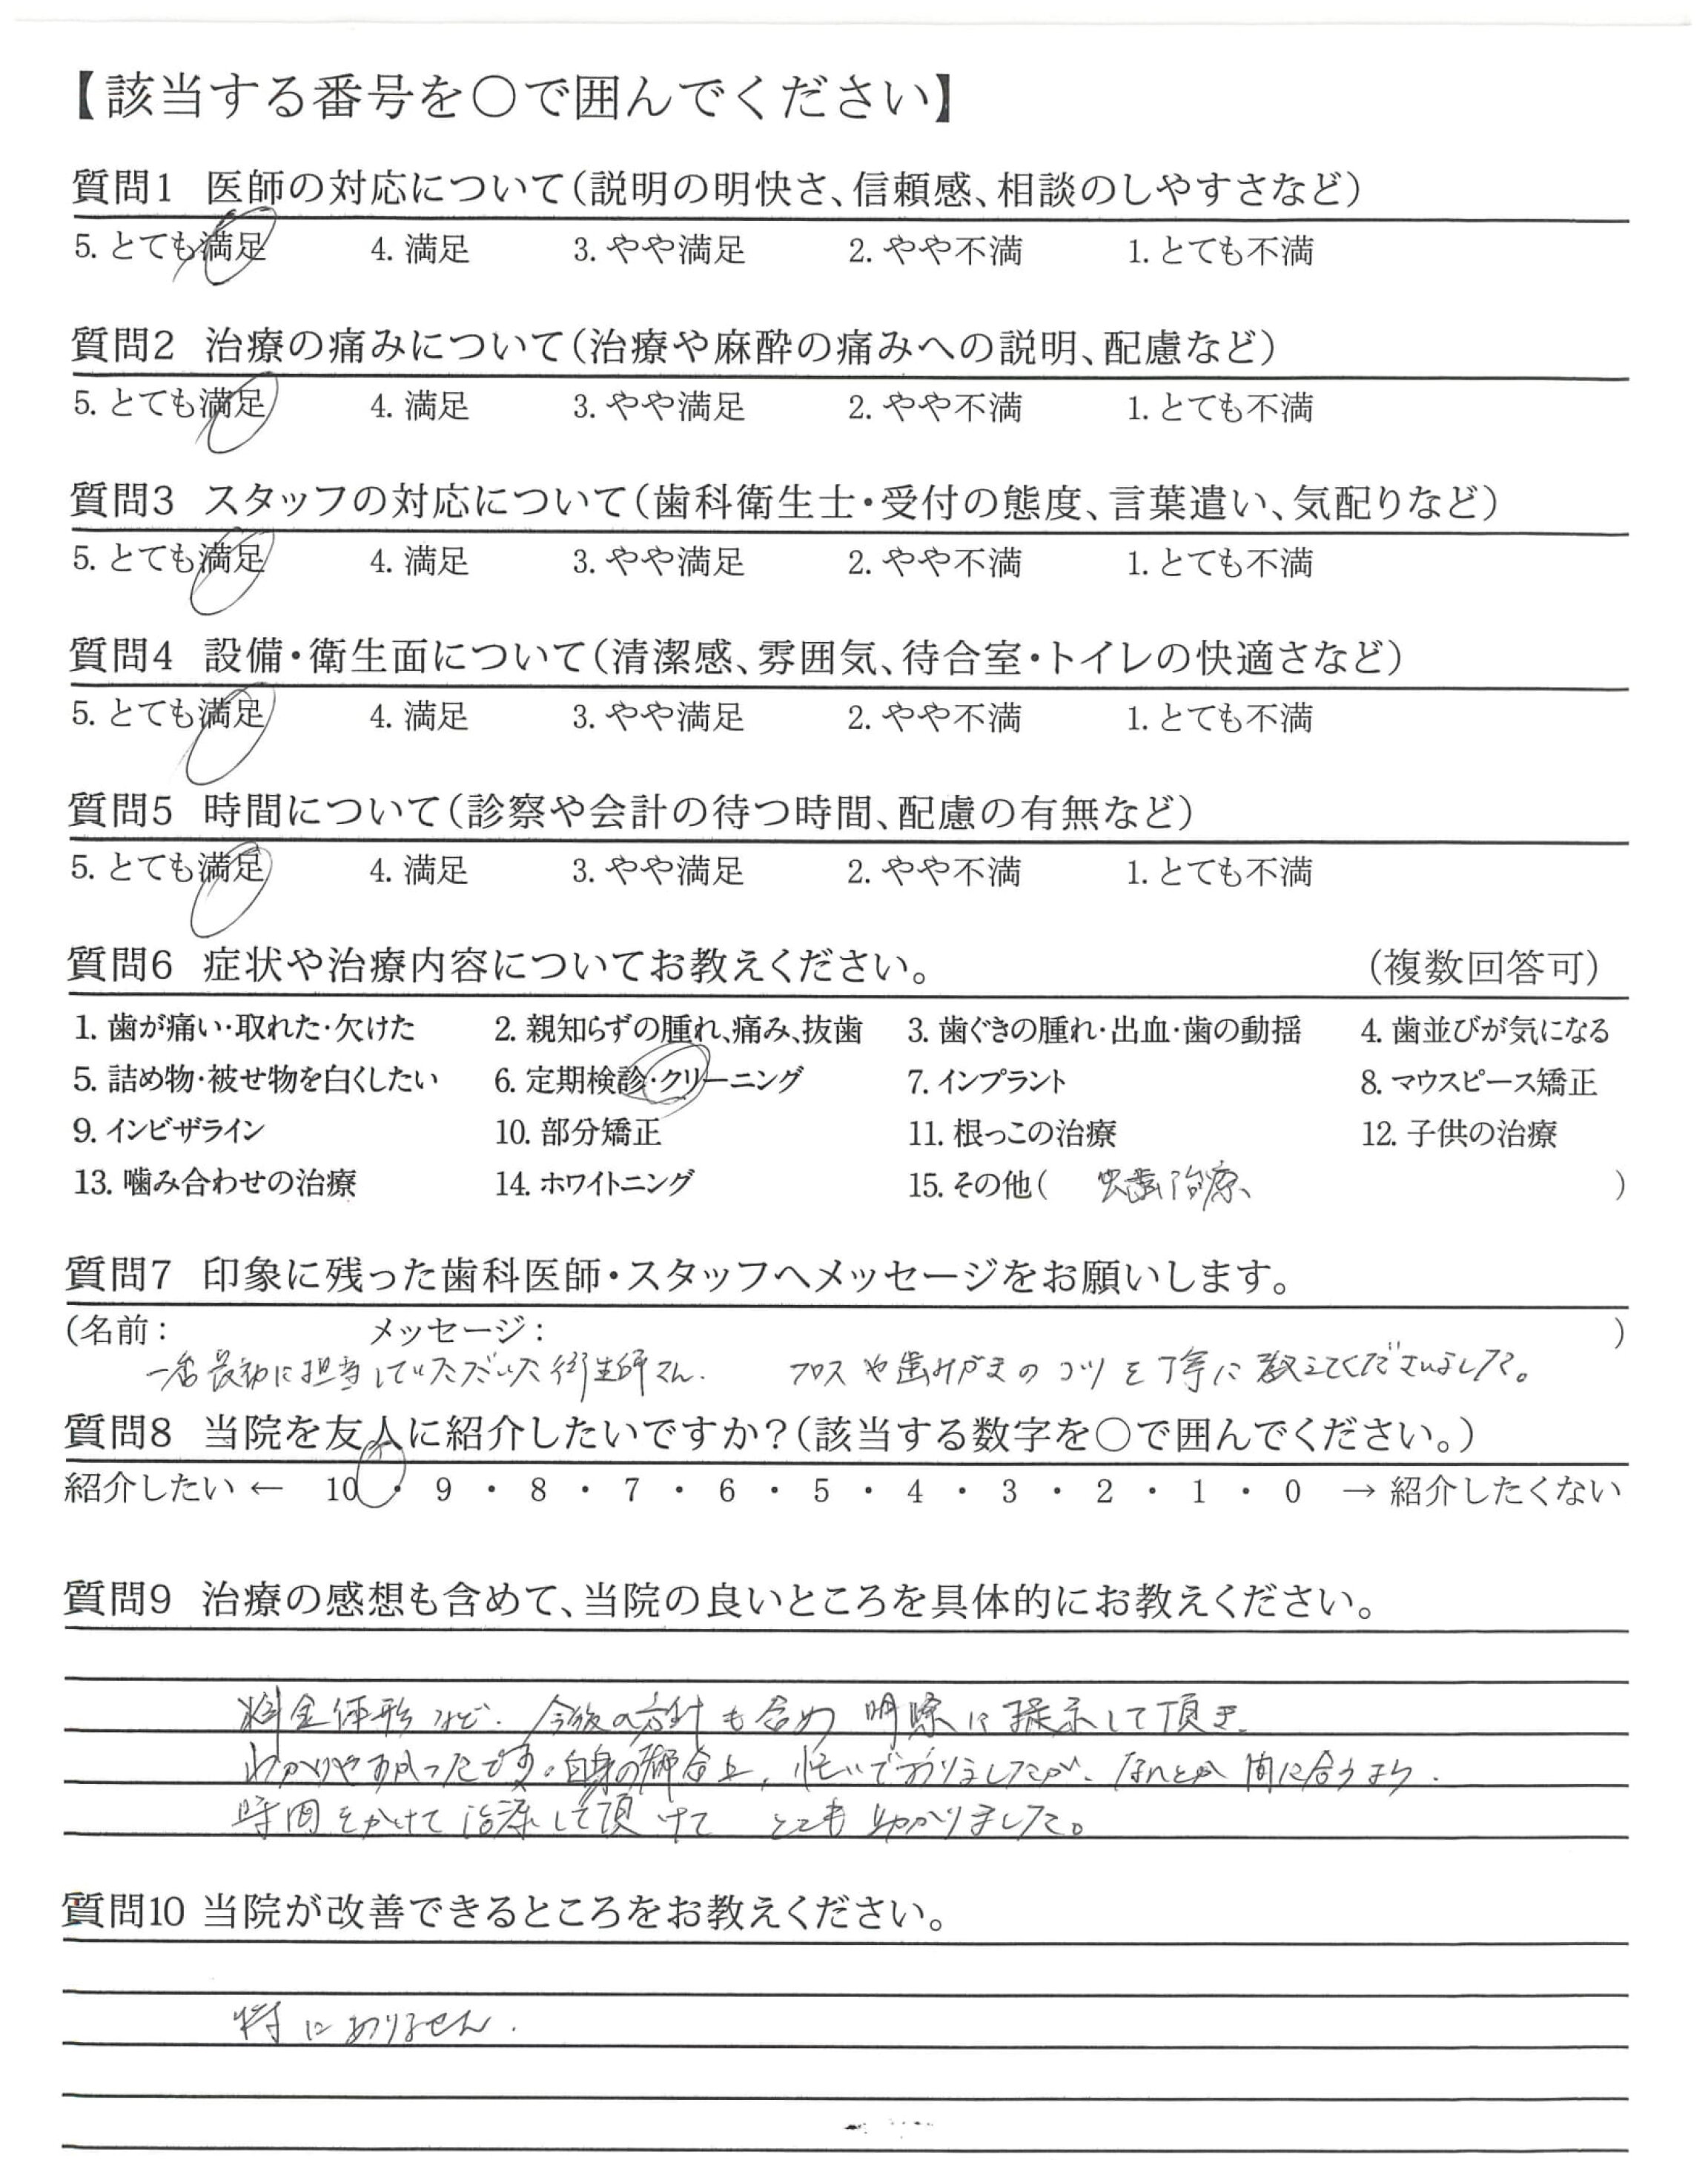 【該当する番号を○で囲んでください】
質問1 医師の対応について(説明の明快さ、信頼感、相談のしやすさなど)
5. とても満足 4. 満足 3. やや満足 2. やや不満 1. とても不満
質問2 治療の痛みについて(治療や麻酔の痛みへの説明、配慮など)
5. とても満足 4. 満足 3. やや満足 2. やや不満 1. とても不満
質問3 スタッフの対応について(歯科衛生士・受付の態度、言葉遣い、気配りなど)
5. とても満足 4. 満足 3. やや満足 2. やや不満 1. とても不満
質問4 設備・衛生面について(清潔感、雰囲気、待合室・トイレの快適さなど)
5. とても満足 4. 満足 3. やや満足 2. やや不満 1. とても不満
質問5 時間について(診察や会計の待つ時間、配慮の有無など)
5. とても満足 4. 満足 3. やや満足 2. やや不満 1. とても不満
質問6 症状や治療内容についてお教えください。 (複数回答可)
1. 歯が痛い・取れた・欠けた 2. 親知らずの腫れ、痛み、抜歯 3. 歯ぐきの腫れ・出血・歯の動揺 4. 歯並びが気になる
5. 詰め物・被せ物を白くしたい 6. 定期検診・クリーニング 7. インプラント 8. マウスピース矯正
9. インビザライン 10. 部分矯正 11. 根っこの治療 12. 子供の治療
13. 噛み合わせの治療 14. ホワイトニング 15. その他( 虫歯治療、 )
質問7 印象に残った歯科医師・スタッフへメッセージをお願いします。
(名前： メッセージ： )
一番最初に担当していただいた衛生師さん. フロスや歯みがきのコツを丁寧に教えてくださいました。
質問8 当院を友人に紹介したいですか?(該当する数字を○で囲んでください。)
紹介したい ← 10 ・ 9 ・ 8 ・ 7 ・ 6 ・ 5 ・ 4 ・ 3 ・ 2 ・ 1 ・ 0 → 紹介したくない
質問9 治療の感想も含めて、当院の良いところを具体的にお教えください。
料金体形など. 今後の方針も含め 明瞭に提示して頂き、
わかりやすかったです。自身の都合上, 忙いでおりましたが、なんとか 間に合うよう.
時間をかけて治療して頂けて とても助かりました。
質問10 当院が改善できるところをお教えください。
特にありません.